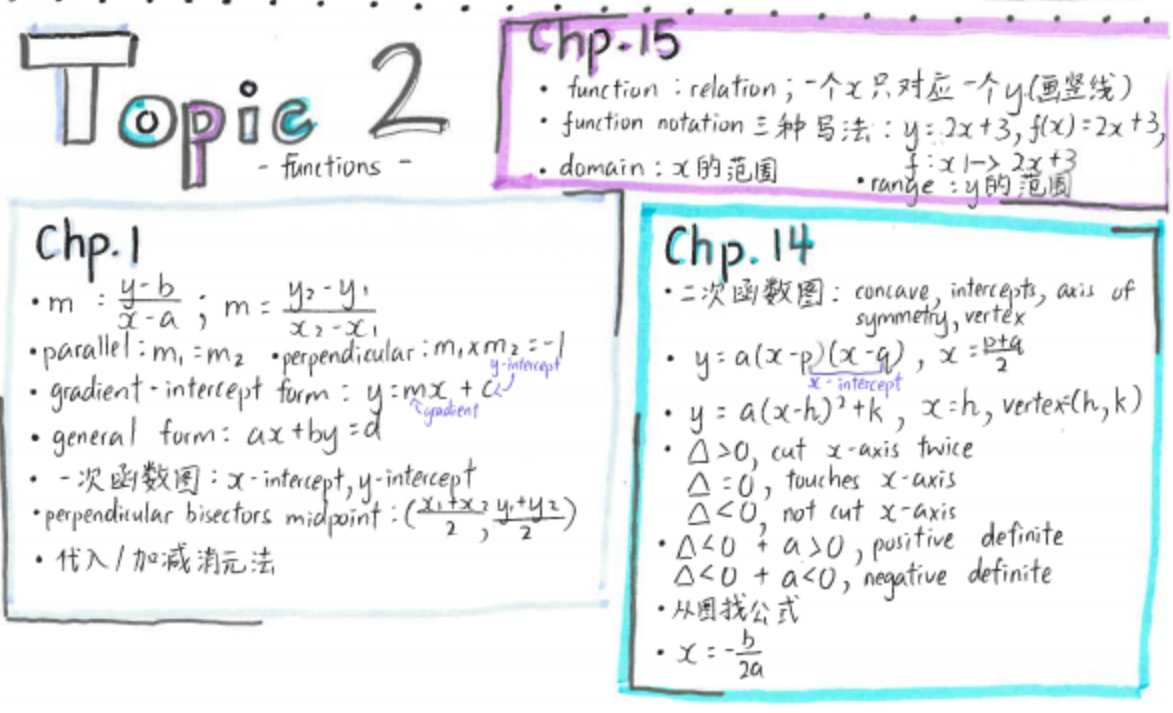 Topic 2
- functions -
Chp.15
• function : relation ; 一个x只对应一个y.(画竖线)
• function notation 三种写法 : y = 2x+3, f(x) = 2x+3,
f : x |-> 2x+3
• domain : x的范围
• range : y的范围
Chp.1
• m : \frac{y-b}{x-a} ; m = \frac{y₂-y₁}{x₂-x₁}
• parallel : m₁ = m₂ • perpendicular : m₁ x m₂ = -1
• gradient - intercept form : y = mx + c
y-intercept
gradient
• general form : ax + by = d
• 一次函数图 : x-intercept, y-intercept
• perpendicular bisectors midpoint : (\frac{x₁+x₂}{2}, \frac{y₁+y₂}{2})
• 代入/加减消元法
Chp. 14
• 二次函数图 : concave, intercepts, axis of
symmetry, vertex
• y = a(x-p)(x-q) , x = \frac{p+q}{2}
x - intercept
• y = a(x-h)² + k , x=h, vertex=(h, k)
• Δ>0, cut x-axis twice
Δ=0, touches x-axis
Δ<0, not cut x-axis
• Δ<0 + a>0, positive definite
Δ<0 + a<0, negative definite
• 从图找公式
• x = -\frac{b}{2a}